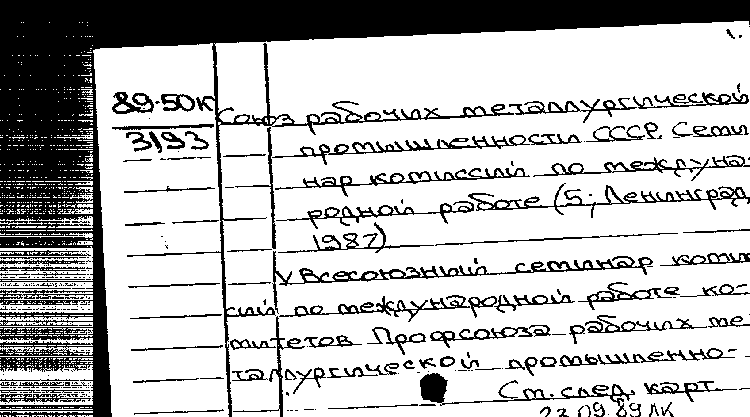 1.
89-50К
3193
Союз рабочих металлургической
промышленности СССР. Семи-
нар комиссий по междуна-
родной работе (5; Ленинград,
1987)
V Всесоюзный семинар комис
сий по международной работе ко-
митетов Профсоюза рабочих ме-
таллургической промышленно-
См. след. карт.
23.09.89 ЛК